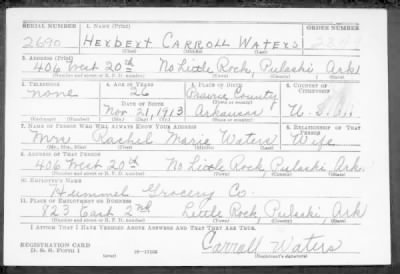 SERIAL NUMBER 1. NAME (Print) ORDER NUMBER
2690 HERBERT CARROLL WATERS
(First) (Middle) (Last)
2. ADDRESS (Print)
406 West 20th No Little Rock, Pulaski Ark
(Number and street or R. F. D. number) (Town) (County) (State)
3. TELEPHONE 4. AGE IN YEARS 5. PLACE OF BIRTH 6. COUNTRY OF CITIZENSHIP
none 26 County
DATE OF BIRTH (Town or county)
Nov 21, 1913 Arkansas U. S. A.
(Exchange) (Number) (Mo.) (Day) (Yr.) (State or country)
7. NAME OF PERSON WHO WILL ALWAYS KNOW YOUR ADDRESS 8. RELATIONSHIP OF THAT PERSON
Mrs Rachel Marie Waters Wife
(Mr., Mrs., Miss) (First) (Middle) (Last)
9. ADDRESS OF THAT PERSON
406 West 20th No Little Rock, Pulaski Ark.
(Number and street or R. F. D. number) (Town) (County) (State)
10. EMPLOYER'S NAME
Hummel Grocery Co.
11. PLACE OF EMPLOYMENT OR BUSINESS
823 East 2nd Little Rock, Pulaski, Ark
(Number and street or R. F. D. number) (Town) (County) (State)
I AFFIRM THAT I HAVE VERIFIED ABOVE ANSWERS AND THAT THEY ARE TRUE.
REGISTRATION CARD
D. S. S. FORM 1 (over) 16-17105 Carroll Waters
(Registrant's signature)